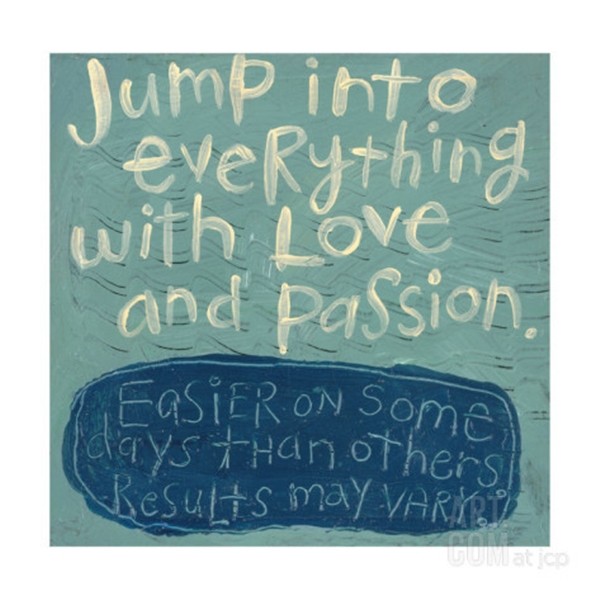 Jump into
eveRything
with Love
and passion.
EaSiER ON Some
days tHan others
Results may VARY...
ART.
COM at jcp